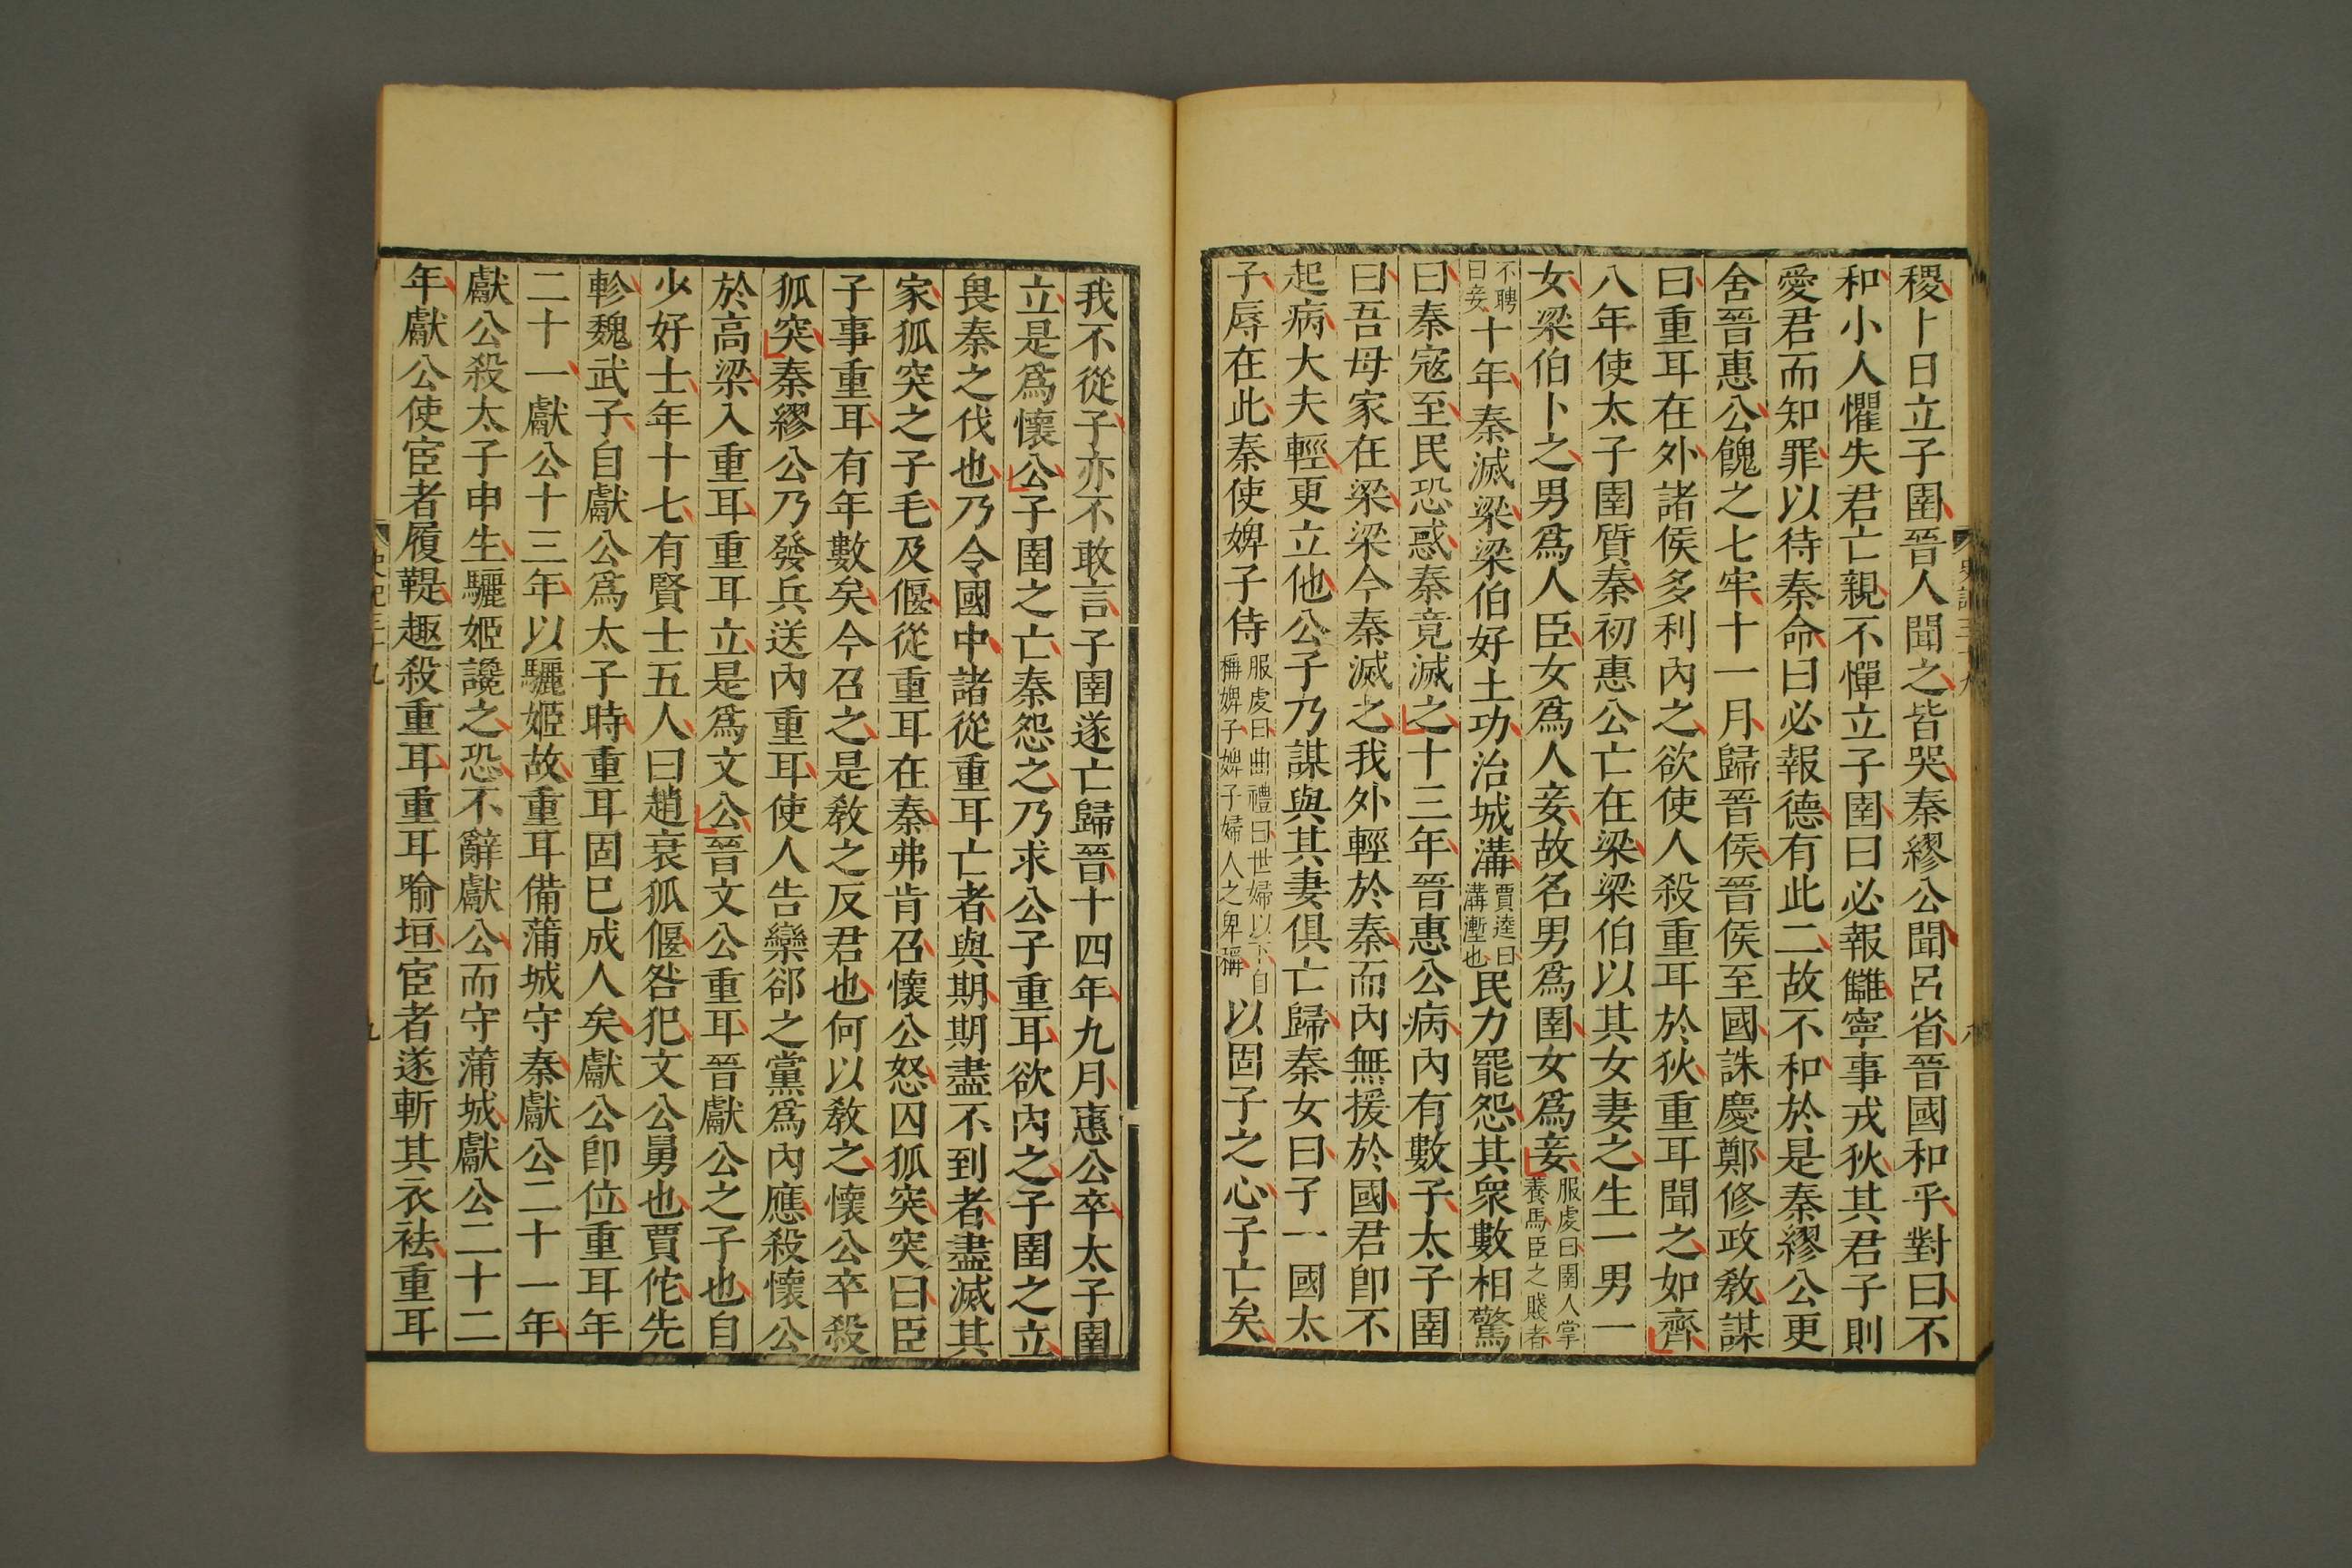 稷卜日立子圉晉人聞之皆哭秦繆公聞呂省晉國和乎對曰不
和小人懼失君亡親不憚立子圉曰必報讎寧事戎狄其君子則
愛君而知罪以待秦命曰必報德有此二故不和於是秦繆公更
舍晉惠公餽之七牢十一月歸晉侯晉侯至國誅慶鄭修政敎謀
曰重耳在外諸侯多利內之欲使人殺重耳於狄重耳聞之如齊
八年使太子圉質秦初惠公亡在梁梁伯以其女妻之生一男一
女梁伯卜之男爲人臣女爲人妾故名男爲圉女爲妾服虔曰圉人掌養馬臣之賤者
不聘曰妾十年秦滅梁梁伯好土功治城溝賈逵曰溝塹也民力罷怨其衆數相驚
曰秦寇至民恐惑秦竟滅之十三年晉惠公病內有數子太子圉
曰吾母家在梁梁今秦滅之我外輕於秦而內無援於國君卽不
起病大夫輕更立他公子乃謀與其妻俱亡歸秦女曰子一國太
子辱在此秦使婢子侍服虔曰曲禮曰世婦以下自稱婢子婢子婦人之卑稱以固子之心子亡矣
史記三十九
八
我不從子亦不敢言子圉遂亡歸晉十四年九月惠公卒太子圉
立是爲懷公子圉之亡秦怨之乃求公子重耳欲內之子圉之立
畏秦之伐也乃令國中諸從重耳亡者與期期盡不到者盡滅其
家狐突之子毛及偃從重耳在秦弗肯召懷公怒囚狐突突曰臣
子事重耳有年數矣今召之是敎之反君也何以敎之懷公卒殺
狐突秦繆公乃發兵送內重耳使人告欒郤之黨爲內應殺懷公
於高梁入重耳重耳立是爲文公晉文公重耳晉獻公之子也自
少好士年十七有賢士五人曰趙衰狐偃咎犯文公舅也賈佗先
軫魏武子自獻公爲太子時重耳固已成人矣獻公卽位重耳年
二十一獻公十三年以驪姬故重耳備蒲城守秦獻公二十一年
獻公殺太子申生驪姬讒之恐不辭獻公而守蒲城獻公二十二
年獻公使宦者履鞮趣殺重耳重耳喻垣宦者遂斬其衣袪重耳
史記三十九
九